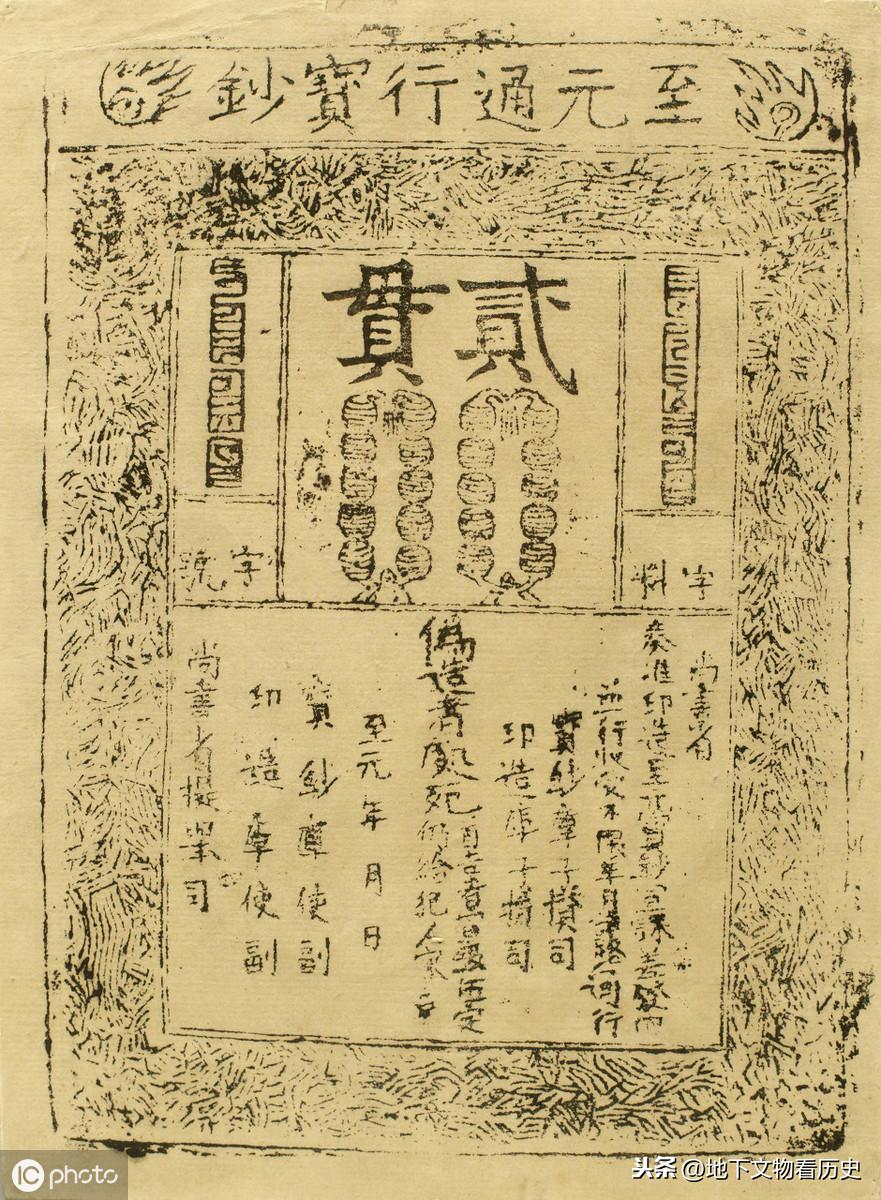 至元通行寶鈔
貳貫
字料
字號
尚書省
奏准印造至元寶鈔宣課差發內
並行收受不限年月諸路通行
寶鈔庫子攢司
印造庫子攢司
偽造者處死
首告者賞銀伍定
仍給犯人家產
至元 年 月 日
寶鈔庫使副
印造庫使副
尚書省提舉司
IC photo
头条 @地下文物看历史